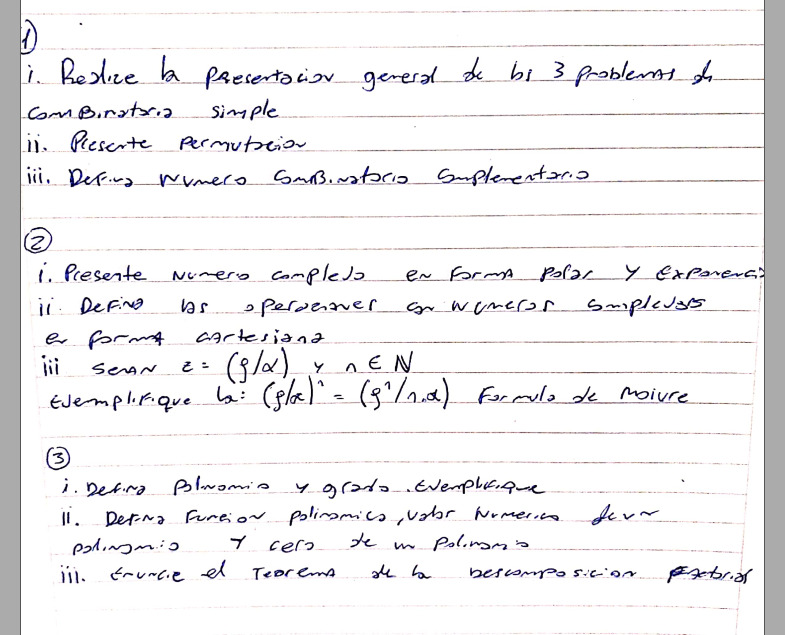 1)
i. Realice la presentacion general de los 3 problemas de
combinatoria simple
ii. Presente permutacion
iii. Defina numero combinatorio complementario
2
i. Presente numero complejo en forma polar y exponencial
ii. Defina las operaciones con numeros complejos
en forma cartesiana
iii sean z = (ρ/α) y n ∈ N
Ejemplifique la: (ρ/α)^n = (ρ^n/n.α) Formula de Moivre
3
i. Defina Polinomio y grado. Ejemplifique
II. Defina Funcion polinomica, valor numerico de un
polinomio y cero de un Polinomio
iii. Enuncie el Teorema de la Descomposicion factorial